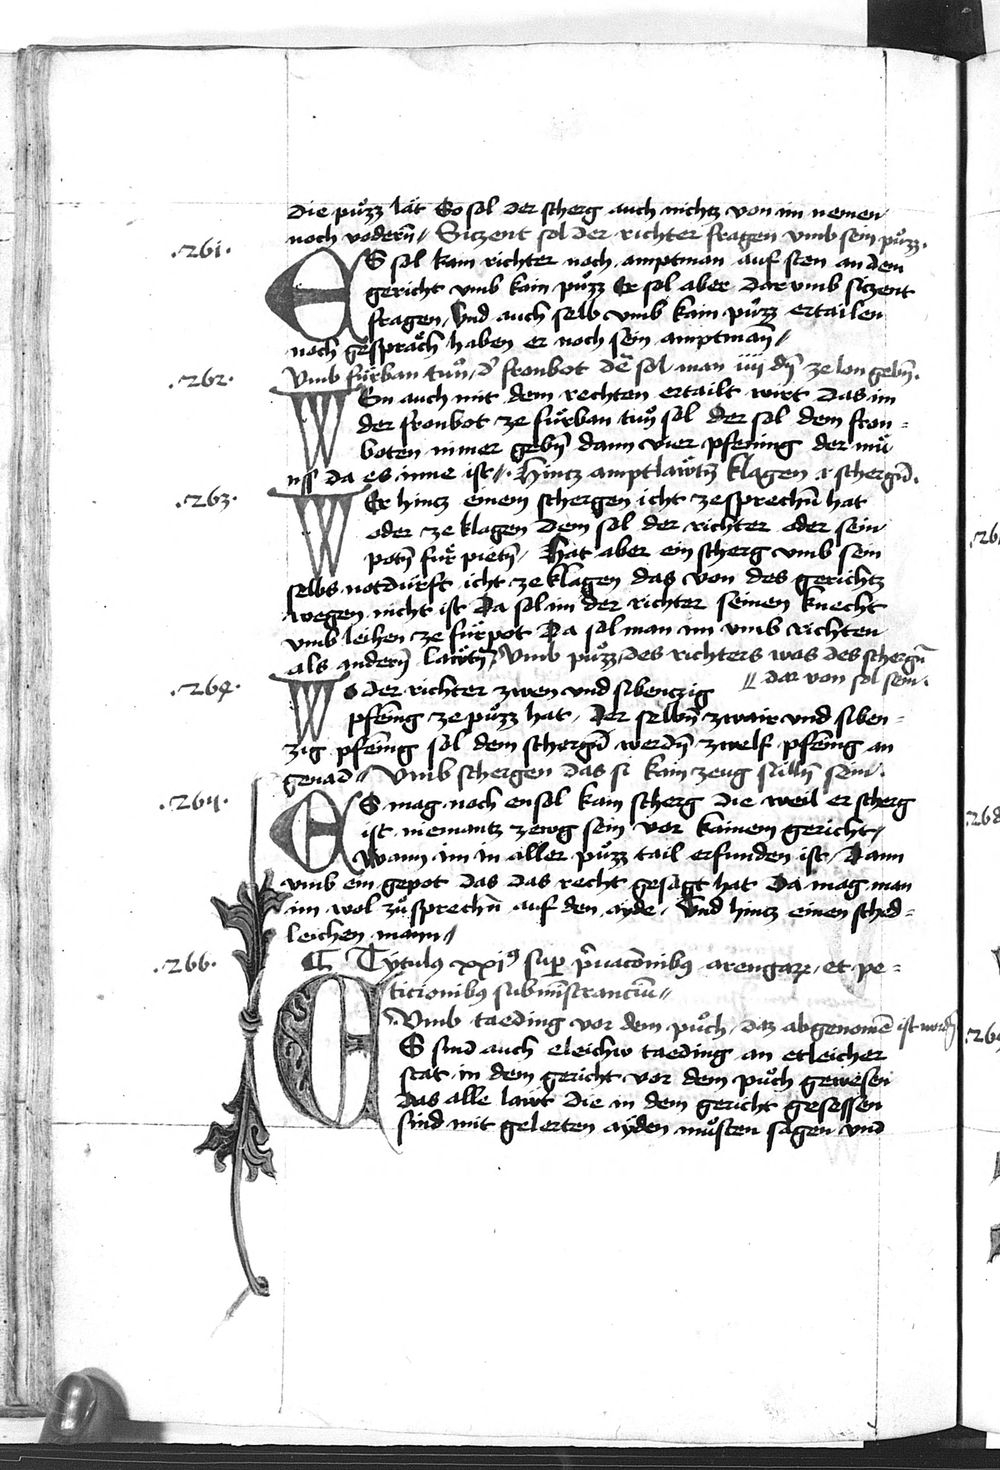 die puͦzz lät So sol der scherg auch nichtz von im nemen
noch vodern̄ // Sitzent sol der richter fragen vmb sein puͦzz.
.261.
ES sol kain richter noch amptman auf sten an dem
gericht vmb kain puͦzz Er sol aber dar vmb sitzent
fragen / Vnd auch selb vmb kain puͦzz ertailen
noch gespräch haben er noch sein amptman̄ //
.262.
Vmb fürban tuͦn / d' fronbot dē sol man iiij dn̄ ze lon gebn̄.
WEm auch mit dem rechten ertailt wirt das im
der fronbot ze fürban tuͦn sol der sol dem fron=
boten nimer gebn̄ dann vier pfening der mü
nss da es inne ist // Hintz amptläwtn̄ klagen
.263.
WEr hintz einem schergen icht ze sprechn̄ hat
oder ze klagen dem sol der richter oder sein
potn̄ für pietn̄ / Hat aber ein scherg vmb sein
selbs notdürft icht ze klagen das von des gerichtz
wegen nicht ist Da sol im der richter seinen knecht
vmb leihen ze fürpot Da sol man im vmb richten
als andern̄ läwtn̄ / Vmb puͦzz / des richters was des schergn̄
// dar von sol sein.
.264.
WO der richter zwen vnd sibentzig
pfening ze puͦzz hat / Der selbn̄ zwair vnd siben=
zig pfening sol dem schergn̄ werdn̄ zwelf pfening an
genad // Vmb schergen das si kain zeug sullen sein.
.265.
ES mag noch ensol kain scherg die weil er scherg
ist niemantz zewg sein vor kainem gericht /
Wann im in aller puͦzz tail erfunden ist / Dann
vmb ein gepot das das recht gesagt hat Da mag man
im wol zuͦ sprechn̄ auf den ayde / Vnd hintz einen sched=
leichen mann /
.266.
Tytulus xxi9 sup p̄uacōnibus arengarum et pe=
ticionibus subministrancium //
Vmb taeding vor dem puͦch / daz abgenomē ist wordn̄
ES sind auch eleichw taeding an etleicher
stat in dem gericht vor dem puͦch gewesen
Das alle läwt die in dem gericht gesessen
sind mit gelerten ayden muͦsten sagen vnd